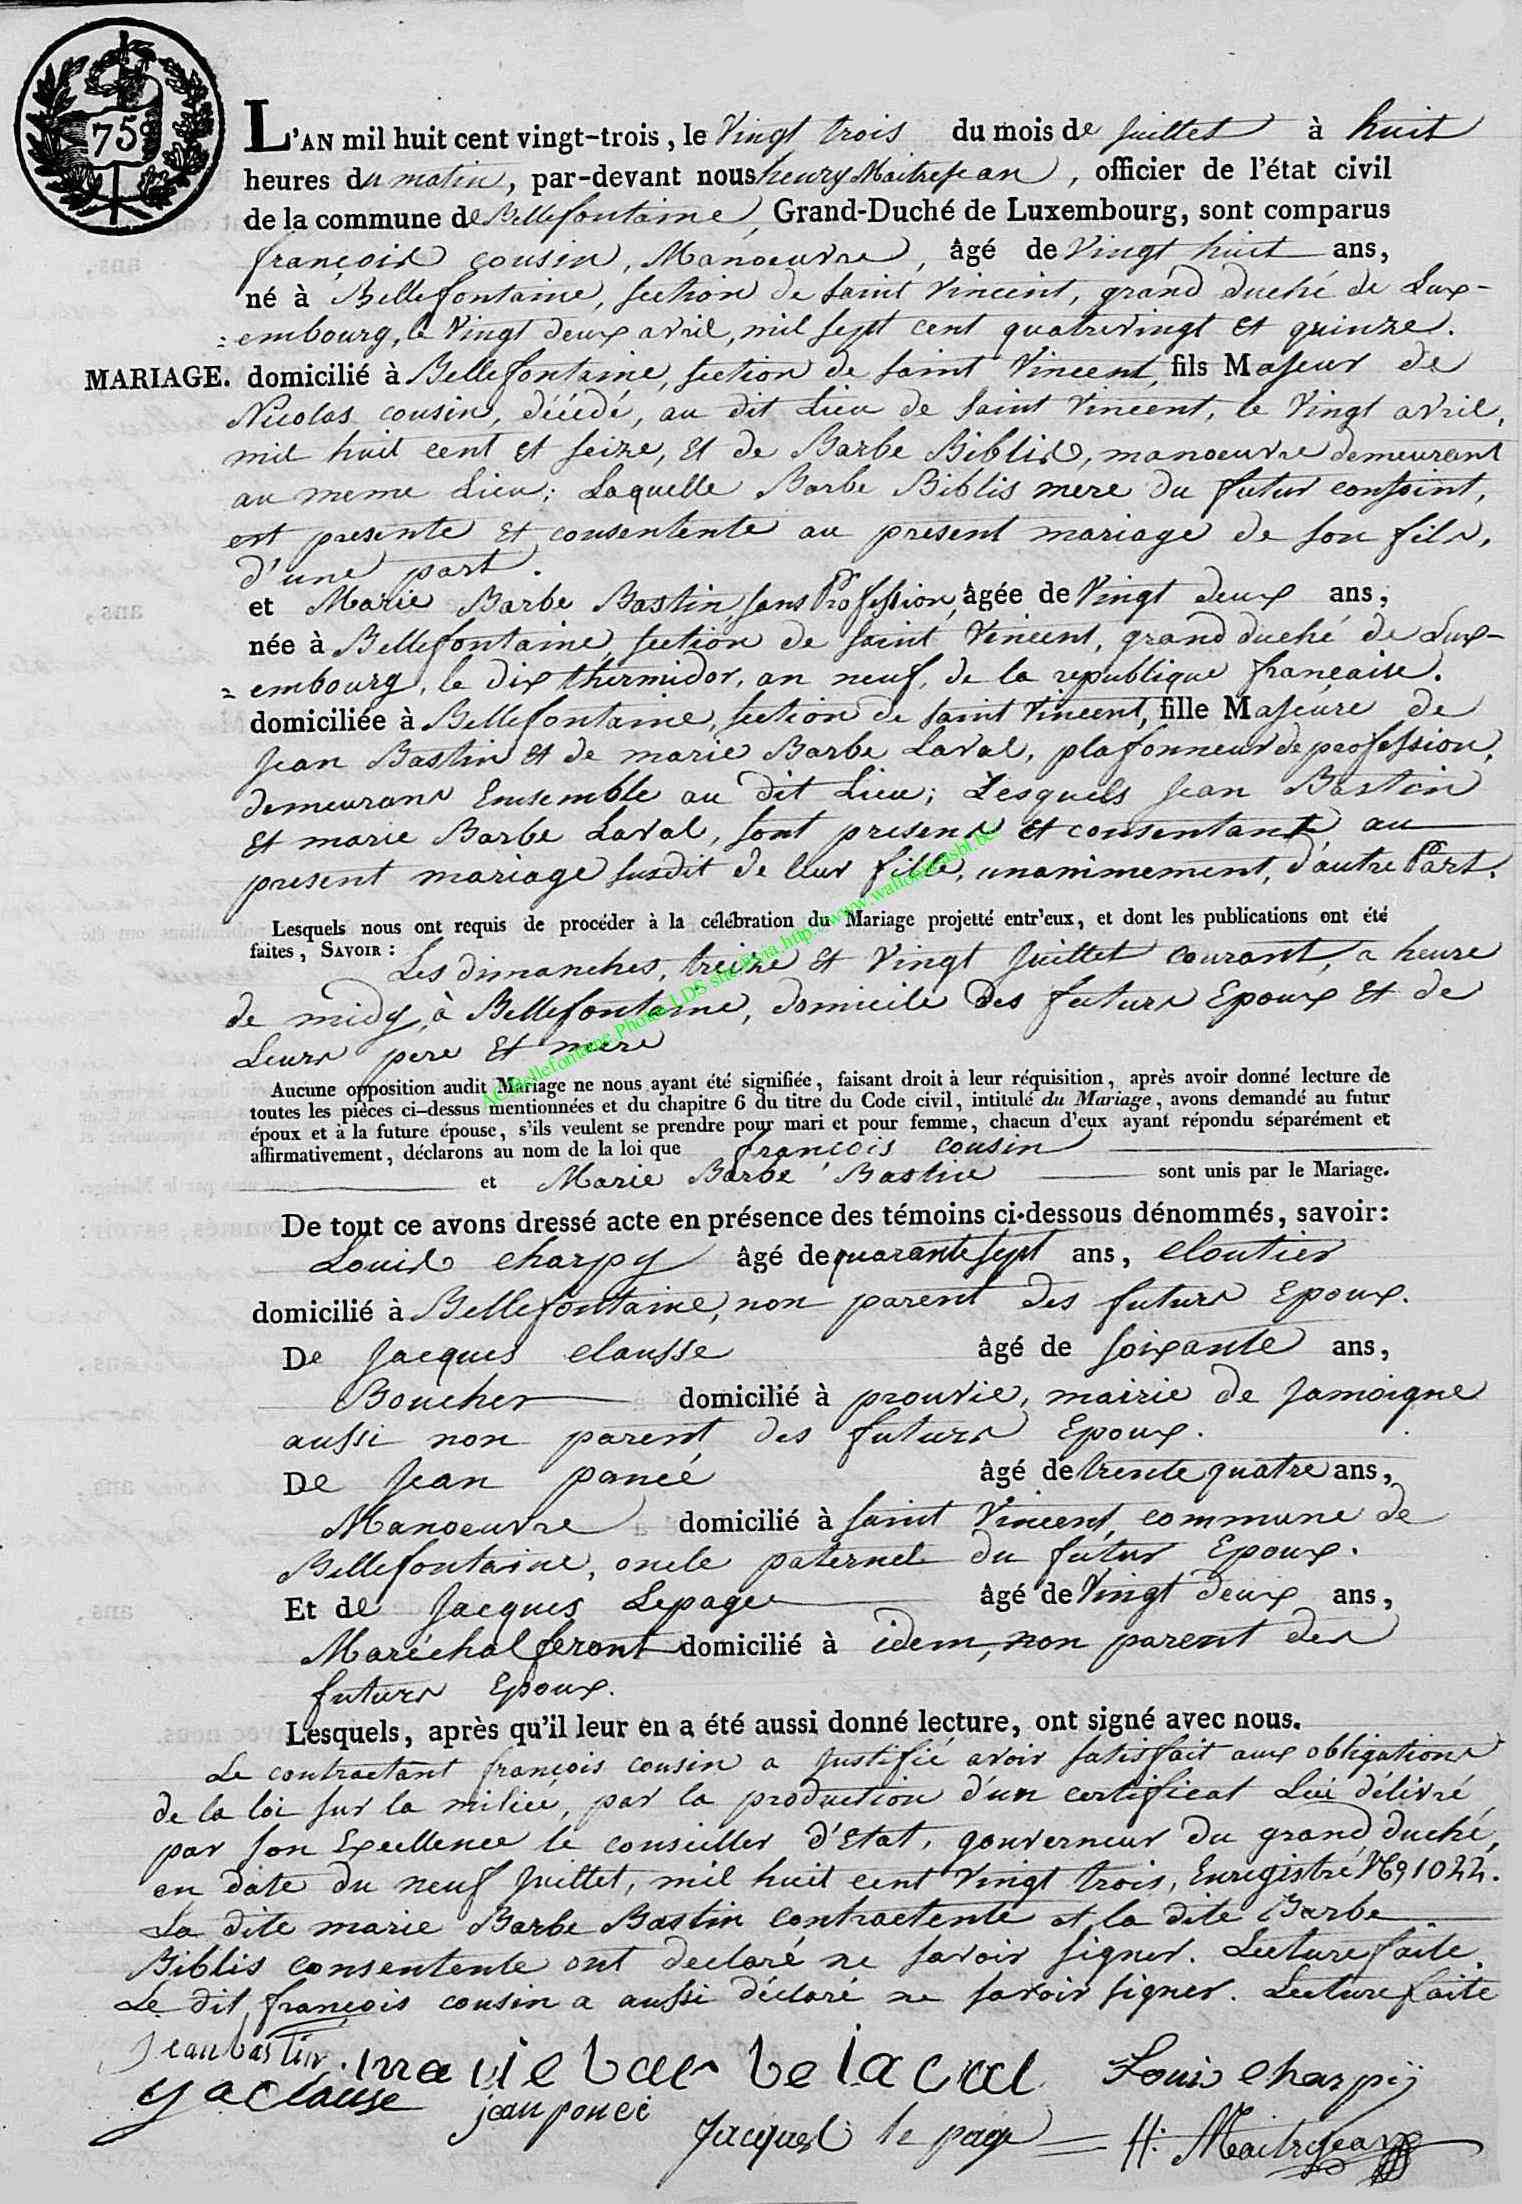 75
L'AN mil huit cent vingt-trois, le Vingt trois du mois de Juillet à huit
heures du matin, par-devant nous henry Maitrejean, officier de l'état civil
de la commune de Bellefontaine, Grand-Duché de Luxembourg, sont comparus
françois cousin, Manoeuvre, âgé de Vingt huit ans,
né à Bellefontaine, section de saint Vincent, grand duché de Lux-
=embourg, le Vingt deux avril, mil sept cent quatrevingt et quinze.
MARIAGE. domicilié à Bellefontaine, section de saint Vincent, fils Majeur de
Nicolas cousin, décédé, au dit Lieu de saint Vincent, le Vingt avril,
mil huit cent et seize, et de Barbe Biblis, manoeuvre demeurant
au meme Lieu; Laquelle Barbe Biblis mere du futur conjoint,
est presente et consentente au present mariage de son fils,
d'une part.
et Marie Barbe Bastin, sans Profession, âgée de Vingt deux ans,
née à Bellefontaine, section de saint Vincent, grand duché de Lux-
=embourg, le dix thermidor, an neuf, de la republique française.
domiciliée à Bellefontaine, section de saint Vincent, fille Majeure de
Jean Bastin et de marie Barbe Laval, plafonneur de profession,
demeurans Ensemble au dit Lieu; Lesquels Jean Bastin
et marie Barbe Laval, sont presens et consentant au
present mariage susdit de leur fille, unanimement, d'autre Part.
Lesquels nous ont requis de procéder à la célébration du Mariage projetté entr'eux, et dont les publications ont été
faites, SAVOIR :
Les dimanches, treize et Vingt Juillet courant, a heure
de midy, à Bellefontaine, domicile des futurs Epoux et de
Leurs pere et mere
Aucune opposition audit Mariage ne nous ayant été signifiée, faisant droit à leur réquisition, après avoir donné lecture de
toutes les pièces ci-dessus mentionnées et du chapitre 6 du titre du Code civil, intitulé du Mariage, avons demandé au futur
époux et à la future épouse, s'ils veulent se prendre pour mari et pour femme, chacun d'eux ayant répondu séparément et
affirmativement, déclarons au nom de la loi que françois cousin
et Marie Barbe Bastin sont unis par le Mariage.
De tout ce avons dressé acte en présence des témoins ci-dessous dénommés, savoir:
Louis charpy âgé de quarante sept ans, cloutier
domicilié à Bellefontaine, non parent des futurs Epoux.
De Jacques clausse âgé de soixante ans,
Boucher domicilié à prouvie, mairie de Jamoigne
aussi non parent des futurs Epoux.
De Jean poncé âgé de trente quatre ans,
Manoeuvre domicilié à saint Vincent, commune de
Bellefontaine, oncle paternel du futur Epoux.
Et de Jacques Lepage âgé de Vingt deux ans,
Maréchal feront domicilié à idem, non parent des
futurs Epoux.
Lesquels, après qu'il leur en a été aussi donné lecture, ont signé avec nous.
Le contractant françois cousin a Justifié avoir satisfait aux obligations
de la loi sur la milice, par la production d'un certificat Lui délivré
par son Excellence le conseiller d'Etat, gouverneur du grand duché,
en date du neuf Juillet, mil huit cent Vingt trois, Enregistré N° 1022.
La dite marie Barbe Bastin contractente et la dite Barbe
Biblis consentente ont declaré ne savoir signer. Lecture faite.
Le dit françois cousin a aussi déclaré ne savoir signer. Lecture faite
jean bastin. marie barbe laval Louis charpÿ
J a clause jean poncé
Jacques le page H: Maitrejean